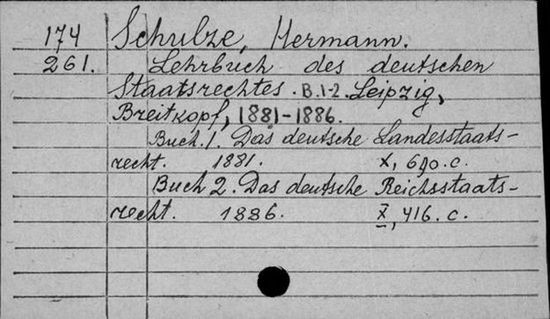 174 Schulze, Hermann.
261. Lehrbuch des deutschen
Staatsrechtes. B.1-2. Leipzig,
Breitkopf, 1881-1886.
Buch. 1. Das deutsche Landesstaats-
recht. 1881. X, 690.c.
Buch 2. Das deutsche Reichsstaats-
recht. 1886. X, 416. c.